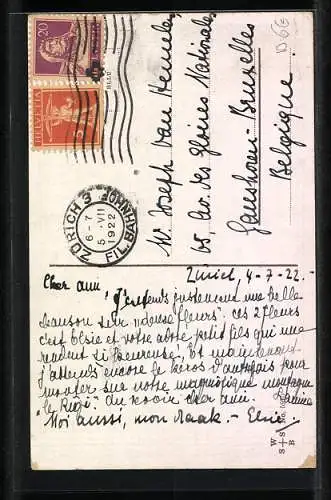 20
HELVETIA
5
ZÜRICH 3 BAHNH.
6-7
5. VII
1922
FILIALE
Mr Joseph Van
65, Av. des gloires Nationales
Ganshoren-Bruxelles
Belgique.
B 6G
Zurich, 4-7-22.-
Cher ami J'entends justement une belle
chanson sur "deux fleurs". ces 2 fleurs
c'est Elsie et votre petit fils qui me
rendent si heureuse. Et maintenant
j'attends encore le pour
monter sur notre magnifique montagne
"le Rigi". Au revoir cher ami.
Moi aussi, mon - Elsie
W
S+S
B